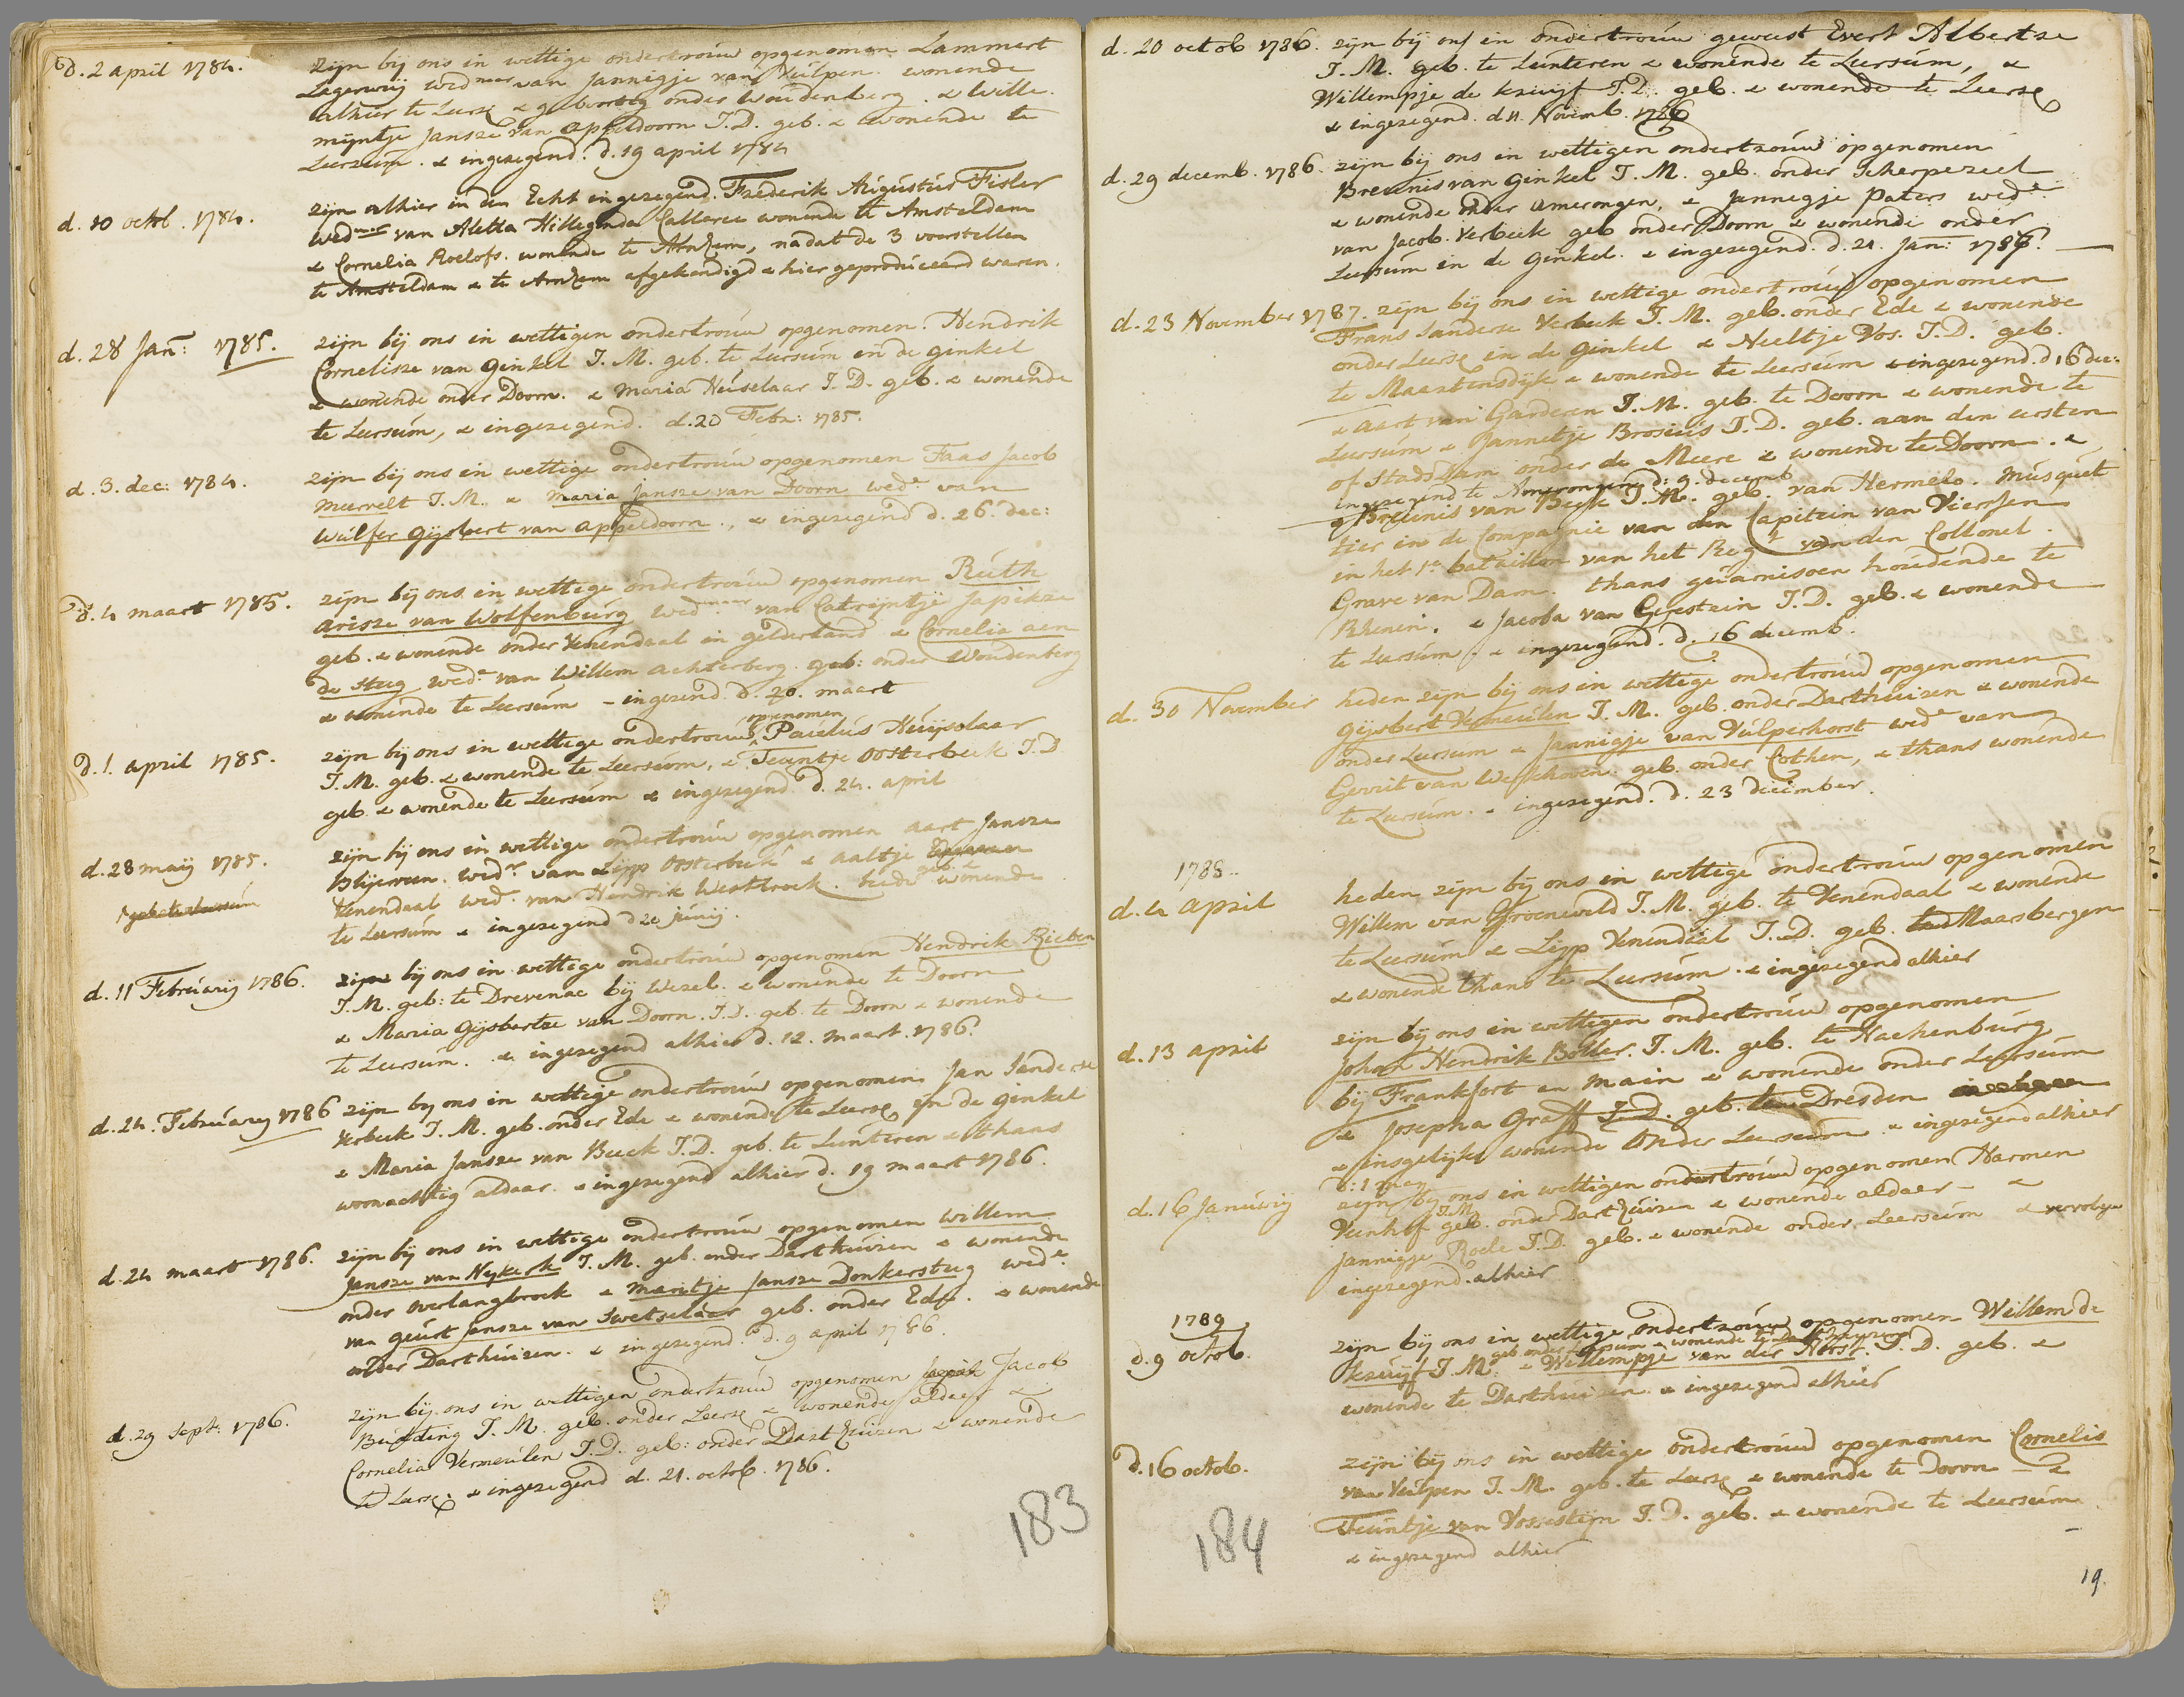 d. 2 april 1784. zijn bij ons in wettige ondertrouw opgenomen Lammert
Lagerweij wed naar van Jannigje van Vulpen. wonende
alhier te Leers. & geboortig onder Woudenberg. & Wille.
mijntje Jansze van Appeldoorn J.D. geb. & wonende te
Leersum. & ingezegend. d. 19 april 1784
d. 10 octob. 1784. zijn alhier in den Echt ingezegend. Frederik Augustus Fisler
wed naar van Aletta Hillegonda Calleree wonende te Amsteldam
& Cornelia Roelofs. wonende te Arnhem, nadat de 3 voorstellen
te Amsteldam & te Arnhem afgekondigd & hier geproduceerd waren.
d. 28 Jan: 1785. zijn bij ons in wettigen ondertrouw opgenomen. Hendrik
Cornelisze van Ginkel J. M. geb. te Leersum in de ginkel
& wonende onder Doorn. & Maria Heuselaar J. D. geb. & wonende
te Leersum, & ingezegend. d. 20 Febr: 1785.
d. 3. dec: 1784. zijn bij ons in wettige ondertrouw opgenomen Faas Jacob
Meervelt J. M. & Maria Jansze van Doorn wed.e van
Wulfer Gijsbert van Appeldoorn., & ingezegend d. 26. dec:
d. 4 maart 1785. zijn bij ons in wettige ondertrouw opgenomen Ruth
Arisze van Wolfenburg wed naar van Catrijntje Japikze
geb. & wonende onder Venendaal in gelderland & Cornelia aen
de Steeg wed.e van Willem Achterberg. geb: onder Woudenberg
& wonende te Leersum - ingezend. d. 20. maart
d. 1. april 1785. zijn bij ons in wettige ondertrouw opgenomen Paulus Huijselaar
J. M. geb. & wonende te Leersum, & Teuntje Oosterbeek J. D
geb. & wonende te Leersum & ingezegend d. 24. april
d. 28 maij 1785. zijn bij ons in wettige ondertrouw opgenomen Aart Jansze
Blijeveen. wed.r van Lijp Oosterbeek & Aaltje
Venendaal wed. van Hendrik Westbroek. beide geb. & wonende
te Leersum & ingezegend d 20 junij.
d. 11 Februarij 1786. zijn bij ons in wettige ondertrouw opgenomen Hendrik Rieben
J. M. geb: te Drevenac bij Wezel. & wonende te Doorn
& Maria Gijsbertze van Doorn. J. D. geb. te Doorn & wonende
te Leersum. & ingezegend alhier d. 12. maart. 1786.
d. 24. Februarij 1786 zijn bij ons in wettige ondertrouw opgenomen Jan Sanderse
Verbeek J. M. geb. onder Ede & wonende te Leers. in de Ginkel
& Maria Jansze van Beeck J. D. geb. te Lunteren & thans
woonachtig aldaar. & ingezegend alhier d. 19 maart 1786.
d. 24 maart 1786. zijn bij ons in wettige ondertrouw opgenomen Willem
Jansze van Nijkerk J. M. geb. onder Darthuizen & wonende
onder overlangbroek & Maritje Jansze Donkersteeg wed.e
van Geurt Jansze van Swetselaar geb. onder Ede. & wonende
onder Darthuizen. & ingezegend. d. 9 april 1786.
d. 29 Sept: 1786. zijn bij ons in wettigen ondertrouw opgenomen Jacob
Budding J. M. geb. onder Leers. & wonende aldaer &
Cornelia Vermeulen J. D. geb: onder Darthuizen & wonende
te Leers. & ingezegend d. 21. octob. 1786.
183
d. 20 octob 1786. zijn bij ons in ondertrouw geweest Evert Albertze
J. M. geb. te Lunteren & wonende te Leersum, &
Willempje de Kruijf J. D. geb. & wonende te Leers.
& ingezegend. d 11. Novemb. 1786
d. 29 decemb. 1786. zijn bij ons in wettigen ondertrouw opgenomen
Breunis van Ginkel J. M. geb. onder Scherpezeel
& wonende onder Amerongen, & Jannegje Paters wed.e
van Jacob. Verbeek geb onder Doorn & wonende onder
Leersum in de Ginkel. & ingezegend. d. 21. Jan: 1787.
d. 23 November 1787. zijn bij ons in wettige ondertrouw opgenomen
Frans Sanderse Verbeek J. M. geb. onder Ede & wonende
onder Leers. in de Ginkel & Neeltje Vos. J. D. geb.
te Maartensdijk & wonende te Leersum & ingezegend. d 16 dec:
& Aart van Garderen J. M. geb. te Doorn & wonende te
Leersum & Jannetje Brosius J. D. geb. aan den eersten
of Stads Dam onder de Meere & wonende te Doorn. &
ingezegend te Amerongen d: 9. decemb
& Breunis van Beek J. M. geb. van Hermelo. musquet
tier in de Compagnie van den Capitein van Vierssen
in het 1e bataillon van het Reg.t van den Collonel
Grave van Dam. thans guarnisoen houdende te
Rhenen. & Jacoba van Geestein J. D. geb. & wonende
te Leersum. & ingezegend. d. 16 decemb.
d. 30 November heden zijn bij ons in wettige ondertrouw opgenomen
Gijsbert Vermeulen J. M. geb. onder Darthuizen & wonende
onder Leersum & Jannigje van Vulperhorst wed.e van
Gerrit van Werkhoven. geb. onder Cothen, & thans wonende
te Leersum. & ingezegend. d. 23 december.
1788.
d. 4 april heden zijn bij ons in wettige ondertrouw opgenomen
Willem van Groeneveld J. M. geb. te Venendaal & wonende
te Leersum & Lijp Venendaal J. D. geb. Maarsbergen
& wonende thans te Leersum. & ingezegend alhier
d. 13 april zijn bij ons in wettigen ondertrouw opgenomen
Johan Hendrik Boller. J. M. geb. te Hachenburg
bij Frankfort an Main & wonende onder Leersum
& Josepha Graff J. D. geb. Dresden
& insgelijks wonende onder Leersum. & ingezegend alhier
d: 1 meij
d. 16 Januarij zijn bij ons in wettigen ondertrouw opgenomen Harmen
Veenhof J.M. geb. onder Darthuizen & wonende aldaer - &
Jannigje Roele J. D. geb. & wonende onder Leersum & vervolgens
ingezegend. alhier
1789
d. 9 octob. zijn bij ons in wettige ondertrouw opgenomen Willem de
Kruijf J. M. geb onder Leersum & wonende te Darthuizen & Willempje van der Horst. J. D. geb. &
wonende te Darthuizen. & ingezegend alhier
d. 16 octob. zijn bij ons in wettige ondertrouw opgenomen Cornelis
van Vulpen J. M. geb. te Leers. & wonende te Doorn - &
Teuntje van Vossestijn J. D. geb. & wonende te Leersum
& ingezegend alhier
184
19.